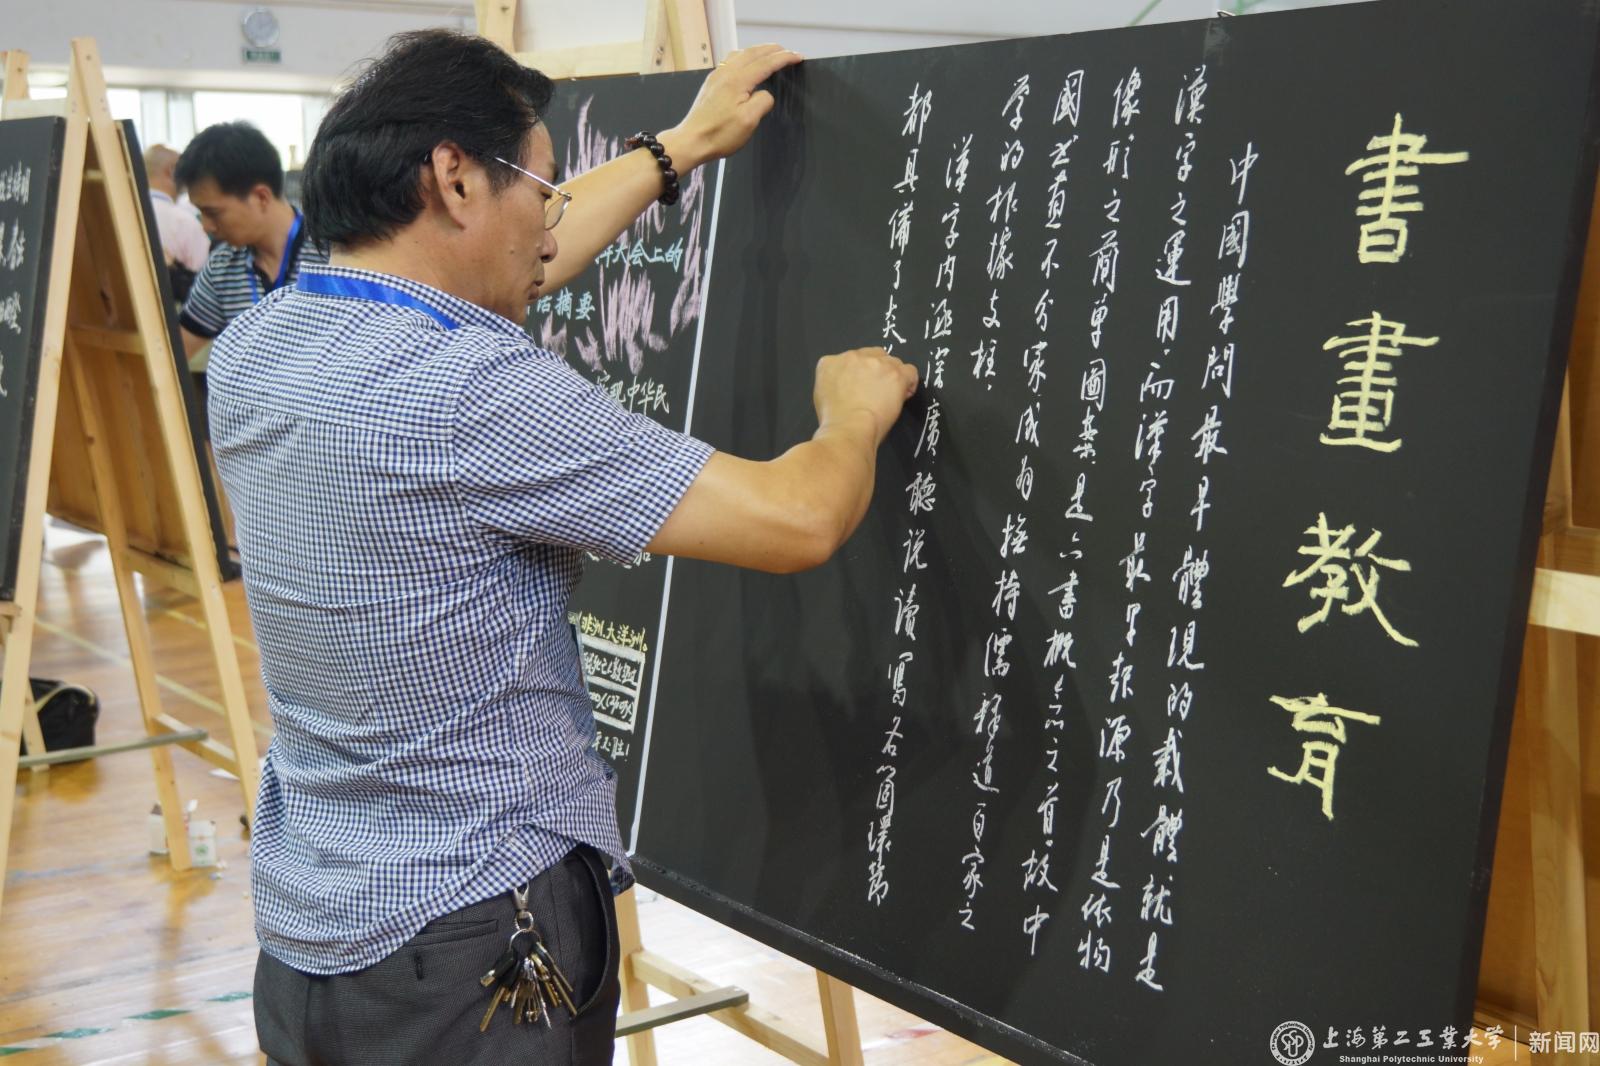 書畫教育
中國學問最早體現的載體就是
漢字之運用，而漢字最早起源乃是依物
像形之簡單圖案，是六書概念之首，故中
國書畫不分家，成為撫持儒釋道百家之
學的根據支柱，
漢字內涵深廣，聽說讀寫各個環節
都具備了炎
大会上的
话摘要
实现中华民
非洲、大洋洲。
上海第二工业大学
新闻网
Shanghai Polytechnic University